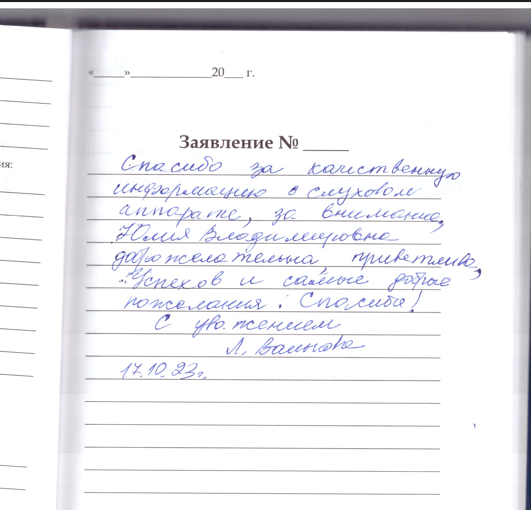 «_____»____________20___ г.
Заявление № _____
ия:
Спасибо за качественную
информацию о слуховом
аппарате, за внимание,
Юлия Владимировна
доброжелательна, приветлива,
Успехов и самые добрые
пожелания! Спасибо!
С уважением
17.10.23г.